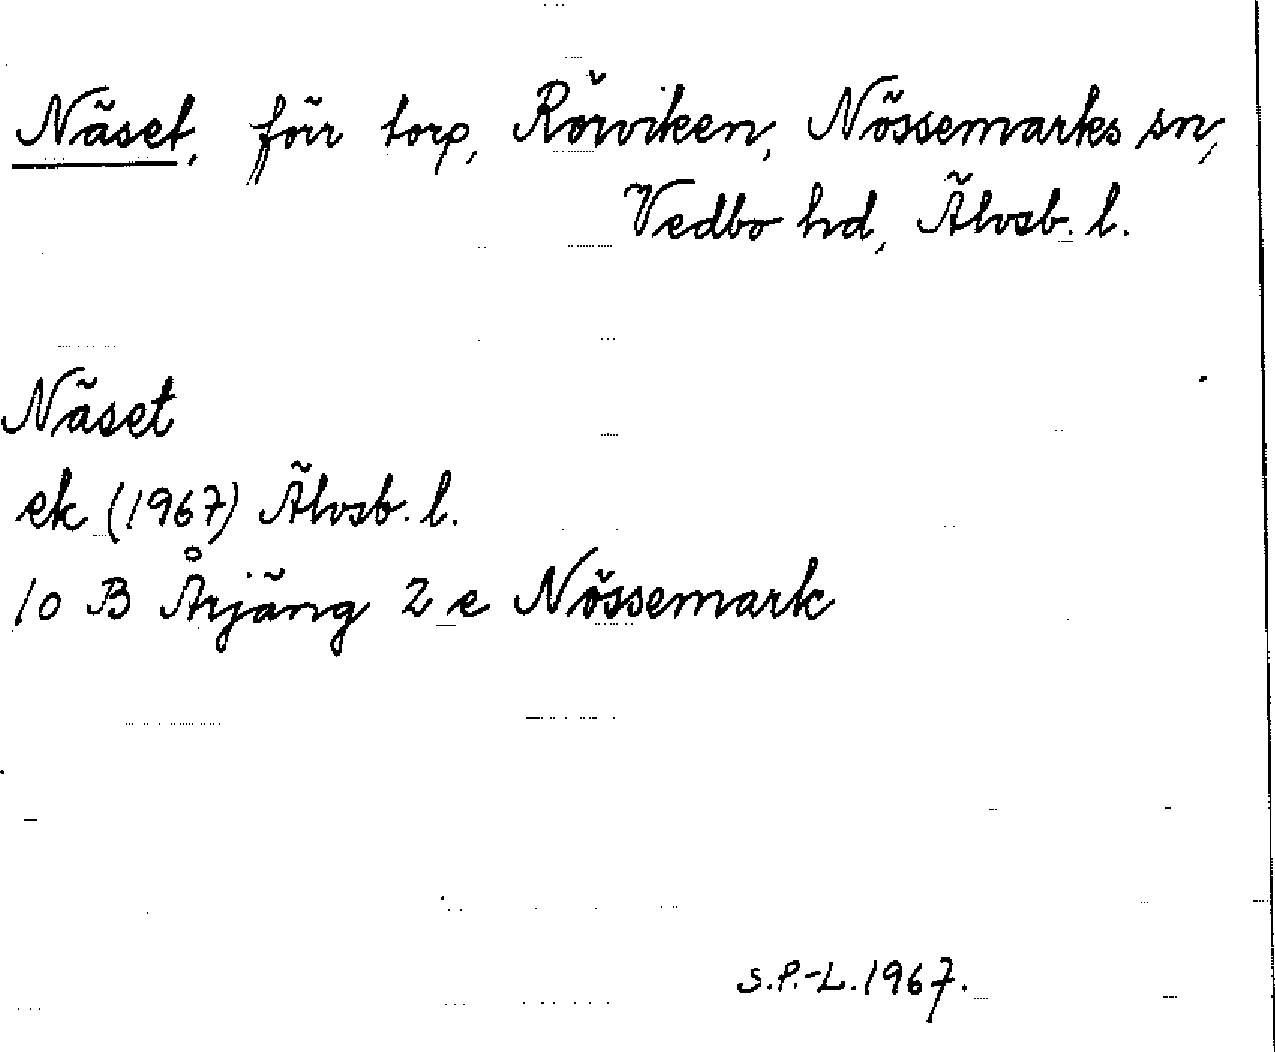 Näset, förr torp, Rörviken, Nössemarks sn,
Vedbo hd, Älvsb. l.
Näset
ek (1967) Älvsb. l.
10 B Årjäng 2 e Nössemark
S.P.-L. 1967.